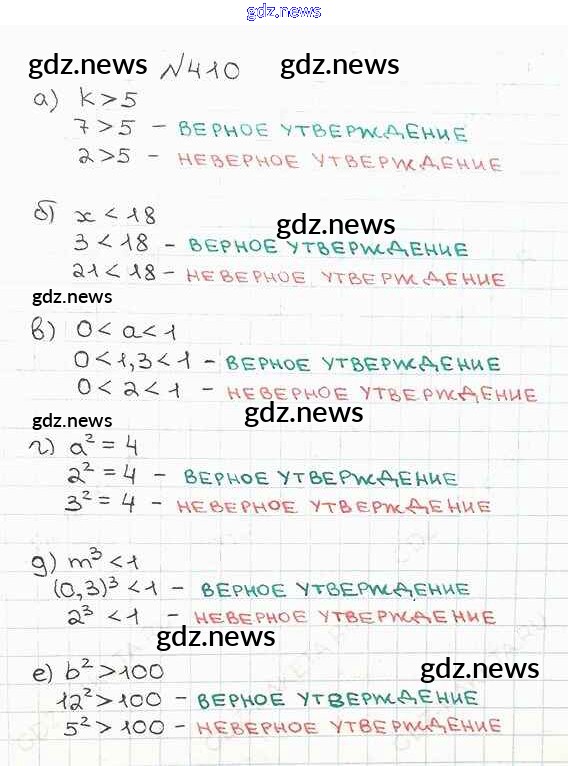 gdz.news
gdz.news №410 gdz.news
а) k > 5
7 > 5 – ВЕРНОЕ УТВЕРЖДЕНИЕ
2 > 5 – НЕВЕРНОЕ УТВЕРЖДЕНИЕ
б) x < 18 gdz.news
3 < 18 – ВЕРНОЕ УТВЕРЖДЕНИЕ
21 < 18 – НЕВЕРНОЕ УТВЕРЖДЕНИЕ
gdz.news
в) 0 < a < 1
0 < 1,3 < 1 – ВЕРНОЕ УТВЕРЖДЕНИЕ
0 < 2 < 1 – НЕВЕРНОЕ УТВЕРЖДЕНИЕ
gdz.news gdz.news
г) a² = 4
2² = 4 – ВЕРНОЕ УТВЕРЖДЕНИЕ
3² = 4 – НЕВЕРНОЕ УТВЕРЖДЕНИЕ
д) m³ < 1
(0,3)³ < 1 – ВЕРНОЕ УТВЕРЖДЕНИЕ
2³ < 1 – НЕВЕРНОЕ УТВЕРЖДЕНИЕ
gdz.news
е) b² > 100 gdz.news
12² > 100 – ВЕРНОЕ УТВЕРЖДЕНИЕ
5² > 100 – НЕВЕРНОЕ УТВЕРЖДЕНИЕ